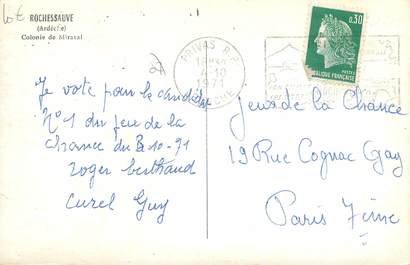 10€
ROCHESSAUVE
(Ardèche)
Colonie de Miraval
PRIVAS R.P.
-10
1971
ARDECHE
0,30
POSTES
REPUBLIQUE FRANÇAISE
Je vote pour la candidate
N°1 du jeu de la
chance du 3-10-71
roger bertrand
Curel Guy
Jeux de la Chance
19 Rue Cognac Gay
Paris 7ème